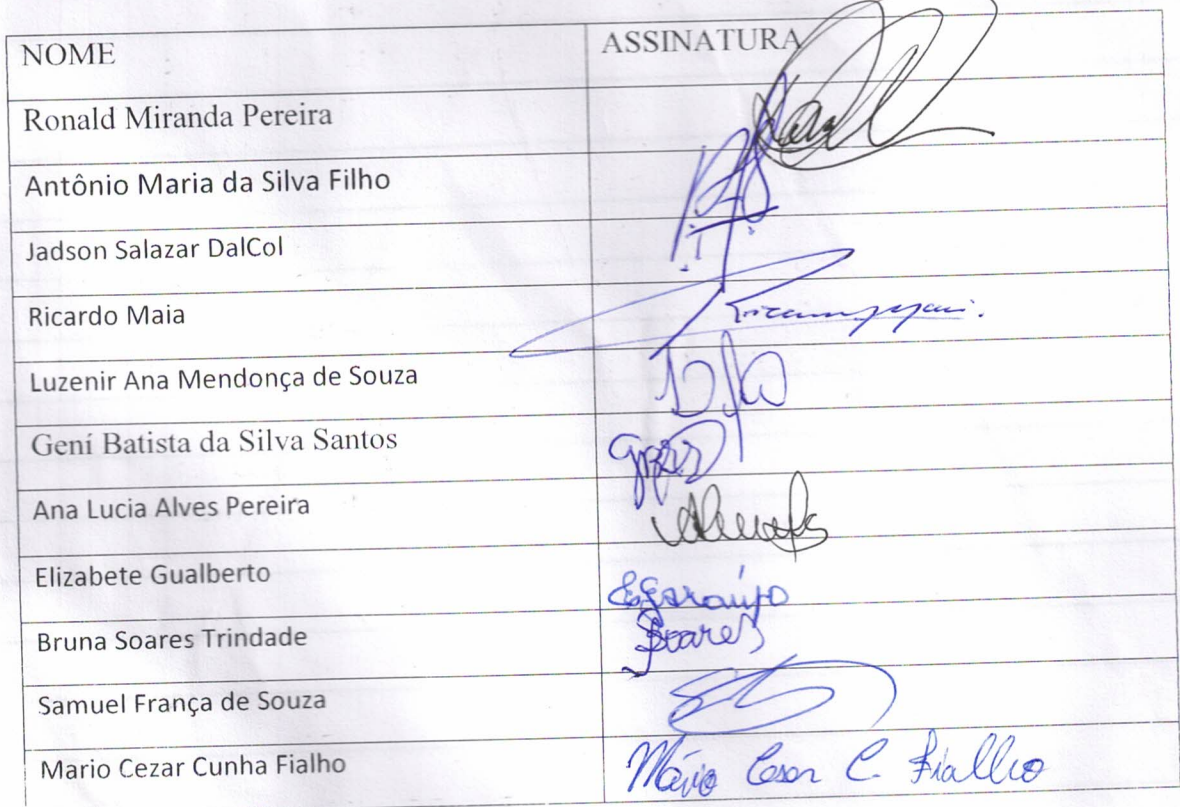 NOME ASSINATURA
Ronald Miranda Pereira
Antônio Maria da Silva Filho
Jadson Salazar DalCol
Ricardo Maia
Luzenir Ana Mendonça de Souza
Gení Batista da Silva Santos
Ana Lucia Alves Pereira
Elizabete Gualberto
Bruna Soares Trindade Soares
Samuel França de Souza
Mario Cezar Cunha Fialho Mário Cesar C. Fialho